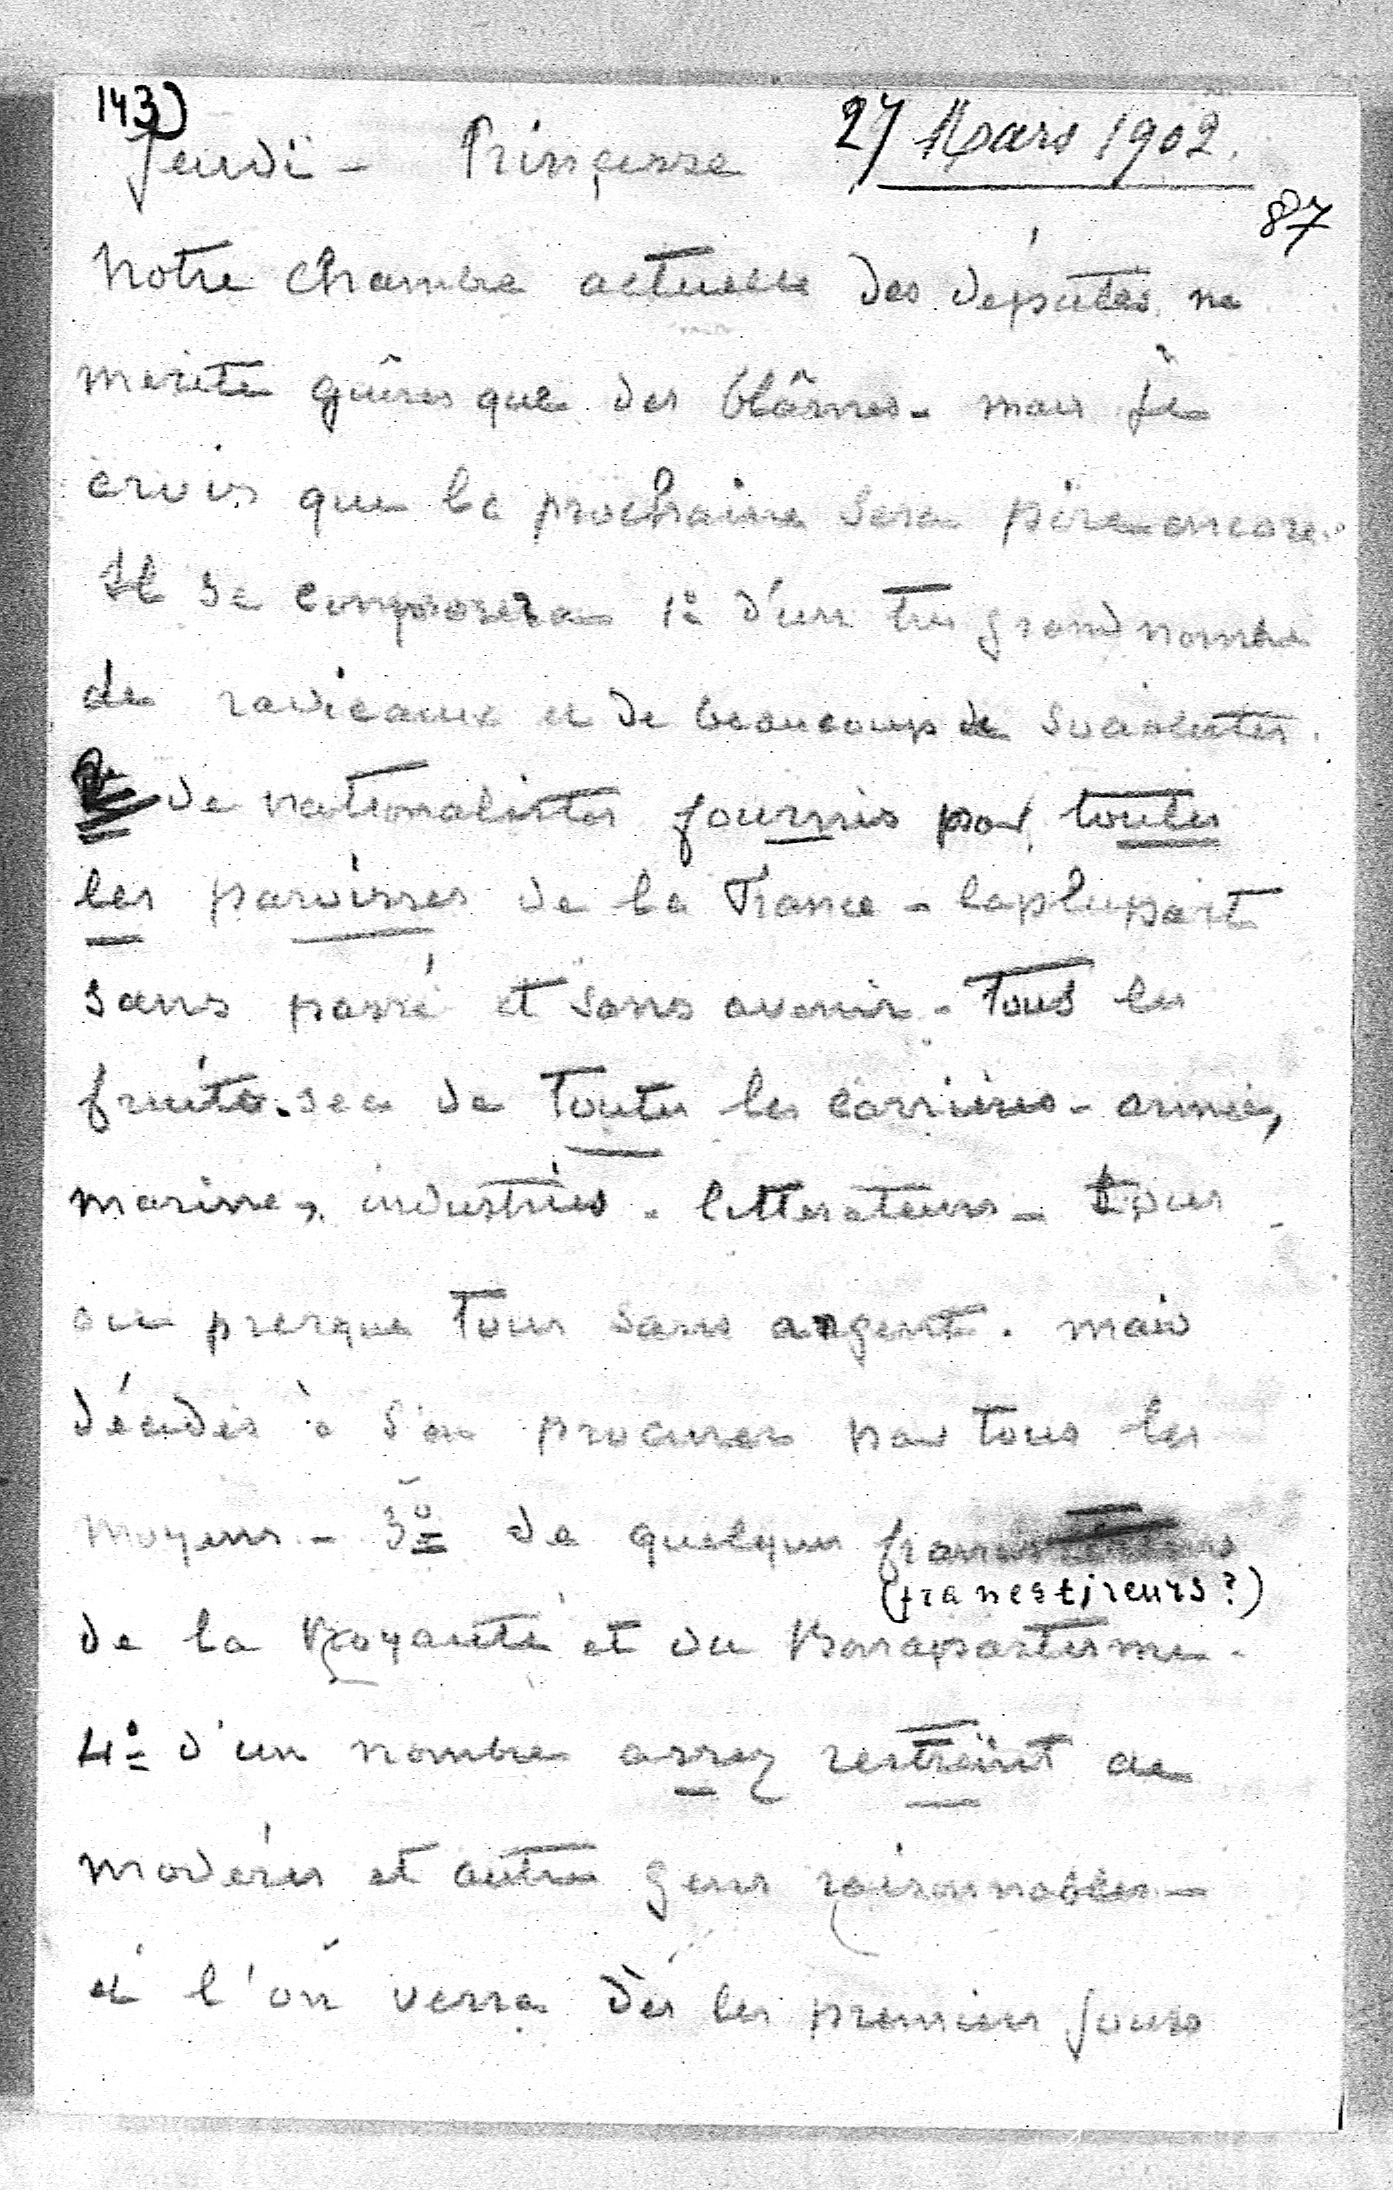 143)
Jeudi - Princesse 27 Mars 1902.
87
Notre Chambre actuelle des députés ne
merite guères que des blâmes - mais je
crois que la prochaine sera pire encore.
Il se composera 1º d'un tres grand nombre
de radicaux et de beaucoup de socialistes.
de nationalistes fournis par toutes
les paroisses de la France - la plupart
sans passé et sans avenir - Tous les
fruits-secs de Toutes les carrières - armée,
marine, industries - litterateurs - Tous
ou presque Tous sans argent. mais
décidés à s'en procurer par tous les
moyens - 3º de quelques francs
(francstireurs?)
de la Royauté et du Bonapartisme.
4º d'un nombre assez restreint de
modérés et autres gens raisonnables -
et l'on verra dès les premiers jours